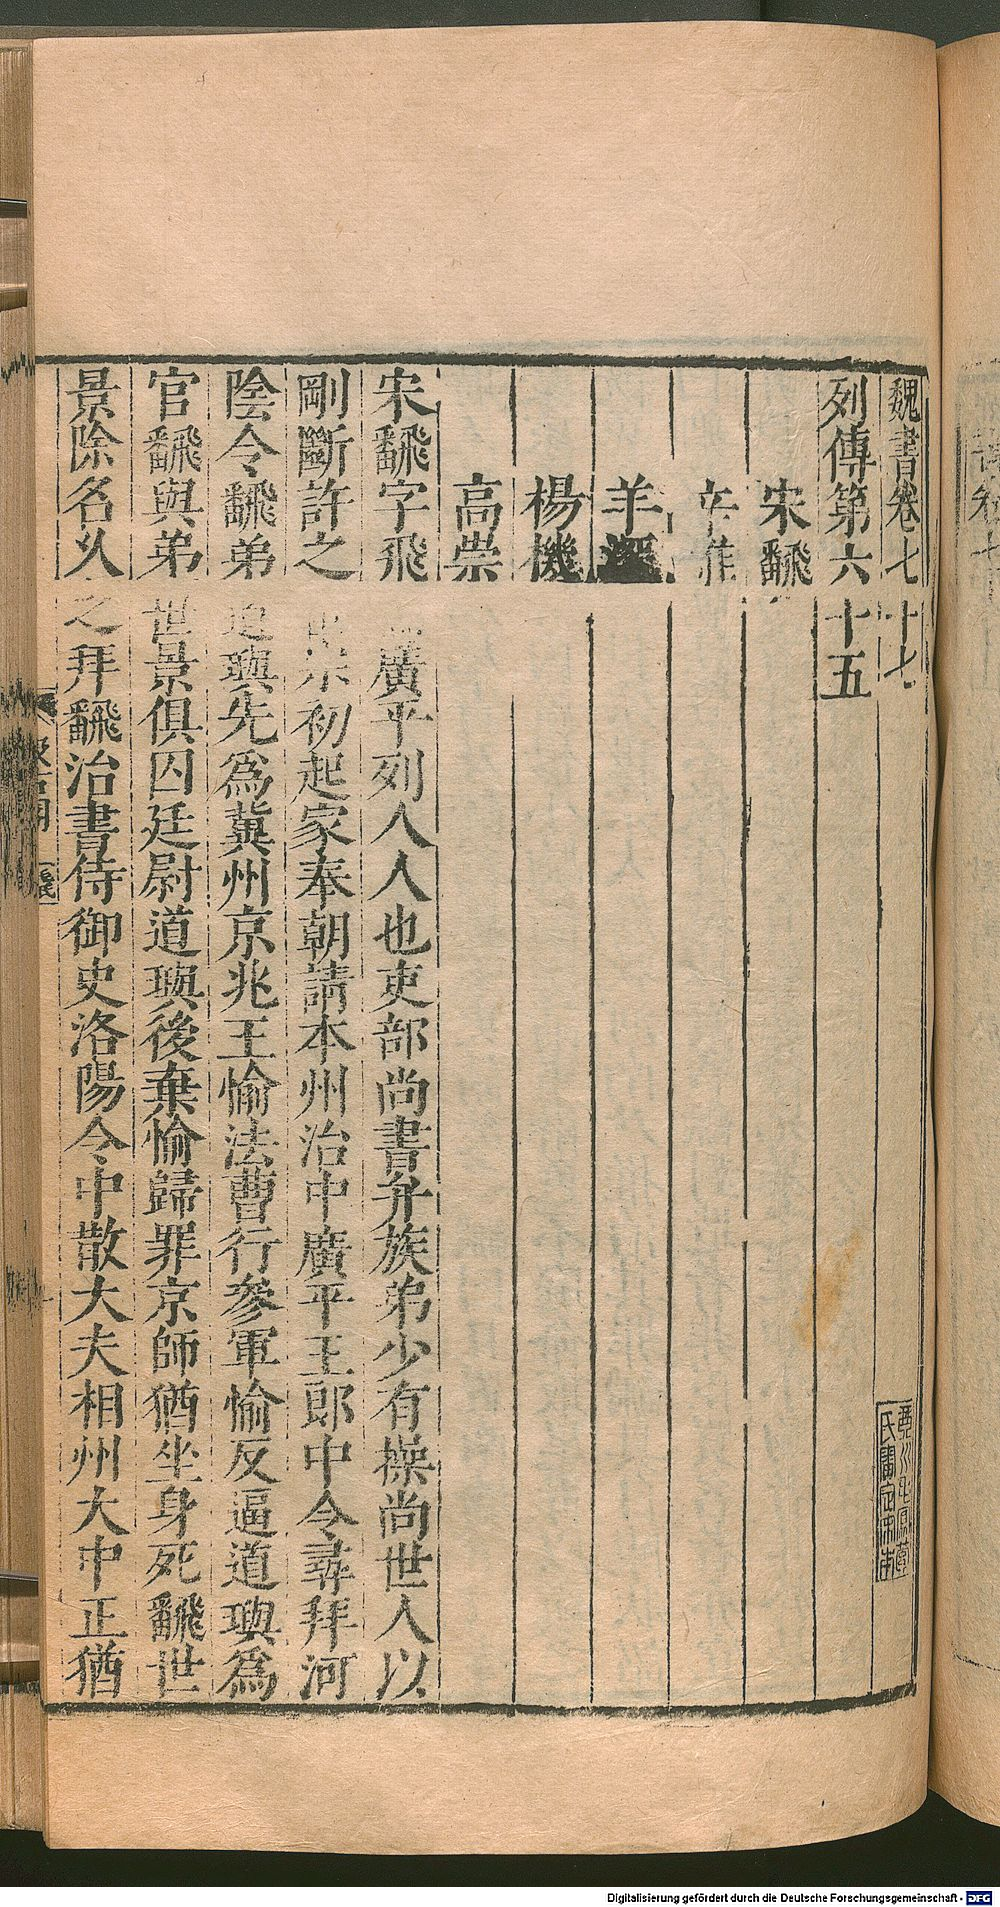 魏書卷七十七
列傳第六十五
宋飜
辛雄
羊深
楊機
高崇
宋飜字飛廣平列人人也吏部尚書弁族弟少有操尚世人以
剛斷許之世宗初起家奉朝請本州治中廣平王郎中令尋拜河
陰令飜弟道璵先爲冀州京兆王愉法曹行參軍愉反逼道璵爲
官飜與弟世景俱囚廷尉道璵後棄愉歸罪京師猶坐身死飜世
景除名久之拜飜治書侍御史洛陽令中散大夫相州大中正猶
汲古閣
毛氏
琴川毛鳳苞
氏審定宋本
Digitalisierung gefördert durch die Deutsche Forschungsgemeinschaft - DFG